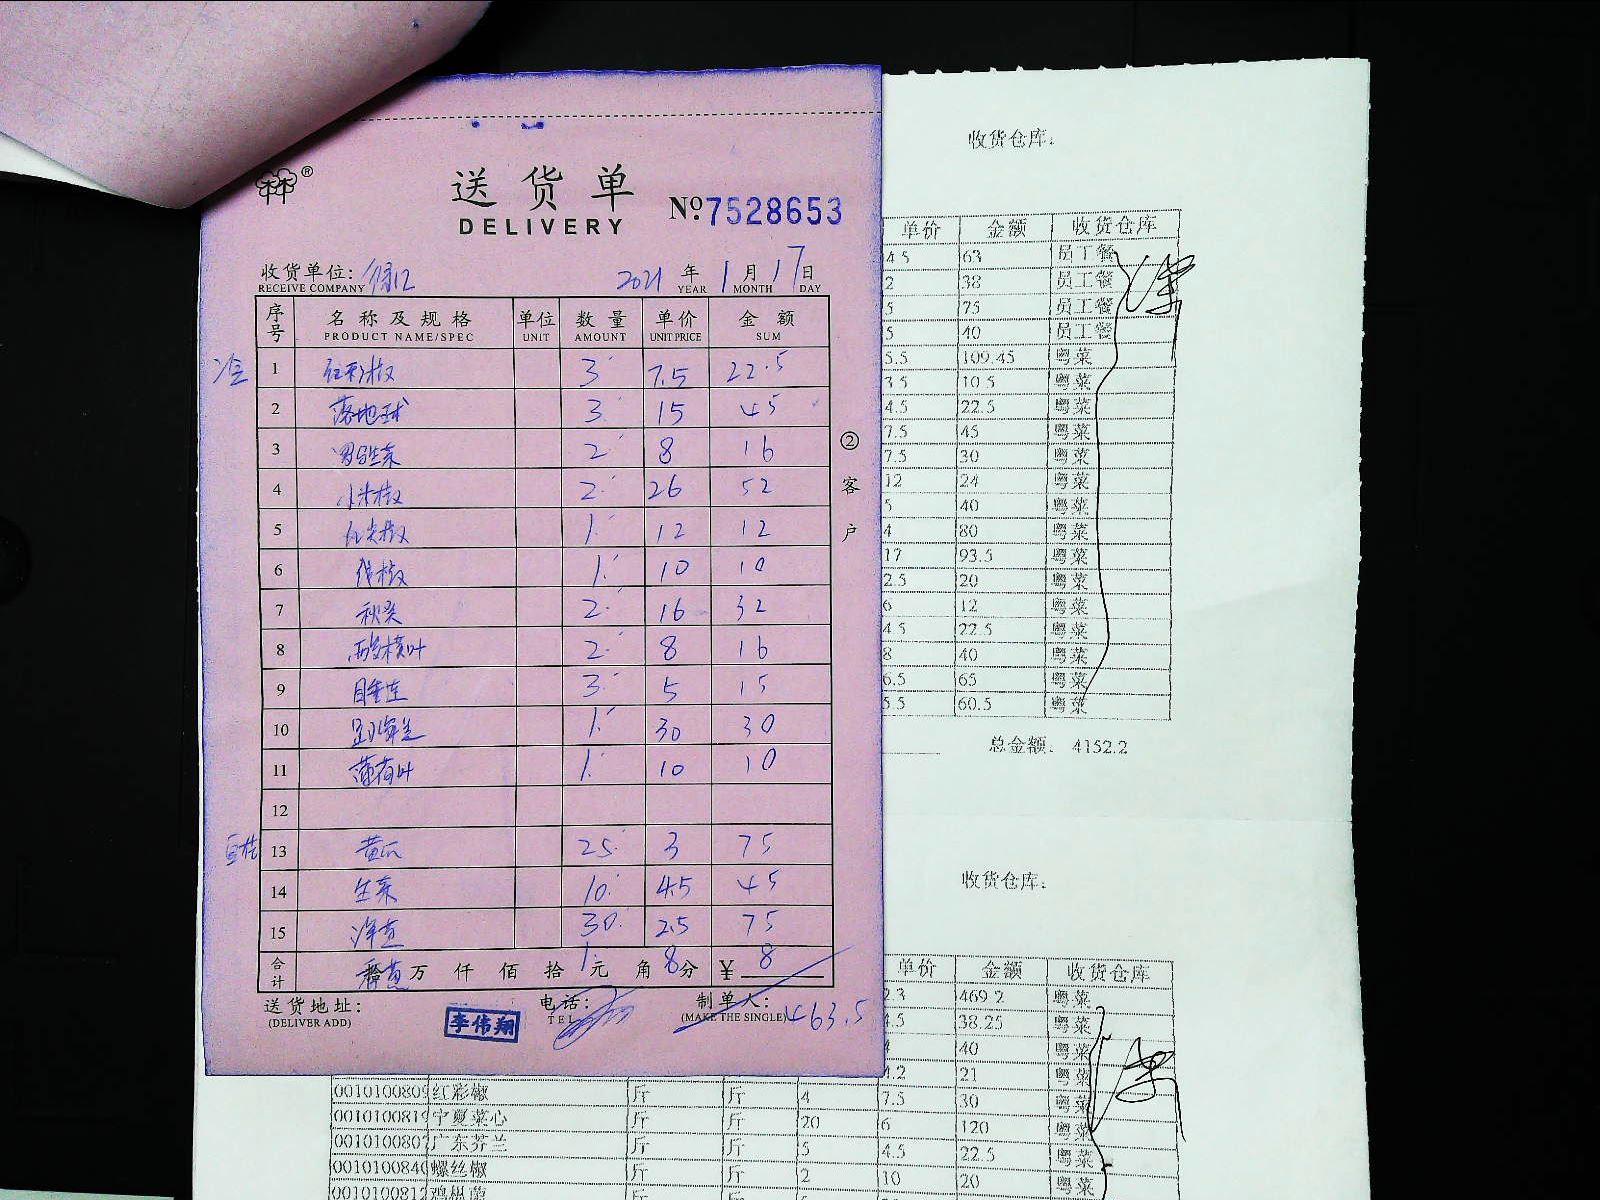 送货单
DELIVERY
№ 7528653
收货单位:
RECEIVE COMPANY
2021 年 1 月 17 日
YEAR MONTH DAY
序号 名称及规格 单位 数量 单价 金额
PRODUCT NAME/SPEC UNIT AMOUNT UNIT PRICE SUM
1 红彩椒 3 7.5 22.5
2 落地球 3 15 45
3 罗马生菜 2 8 16
4 小米椒 2 26 52
5 红尖椒 1 12 12
6 线椒 1 10 10
7 秋葵 2 16 32
8 2 8 16
9 3 5 15
10 1 30 30
11 薄荷叶 1 10 10
12
13 黄瓜 25 3 75
14 生菜 10 4.5 45
15 洋葱 30 2.5 75
合计 万 仟 佰 拾 元 角 分 ¥
1 8 8
送货地址:
(DELIVER ADD)
电话:
TEL
制单人:
(MAKE THE SINGLE)
463.5
李伟翔
② 客户
收货仓库:
单价 金额 收货仓库
4.5 63 员工餐
2 38 员工餐
5 75 员工餐
5 40 员工餐
5.5 109.45 粤菜
3.5 10.5 粤菜
4.5 22.5 粤菜
7.5 45 粤菜
7.5 30 粤菜
12 24 粤菜
5 40 粤菜
4 80 粤菜
17 93.5 粤菜
2.5 20 粤菜
6 12 粤菜
4.5 22.5 粤菜
8 40 粤菜
6.5 65 粤菜
5.5 60.5 粤菜
总金额: 4152.2
收货仓库:
单价 金额 收货仓库
2.3 469.2 粤菜
4.5 38.25 粤菜
4 40 粤菜
4.2 21 粤菜
0010100809 红彩椒 斤 斤 4 7.5 30 粤菜
0010100819 宁夏菜心 斤 斤 20 6 120 粤菜
0010100807 广东芥兰 斤 斤 5 4.5 22.5 粤菜
0010100840 螺丝椒 斤 斤 2 10 20 粤菜